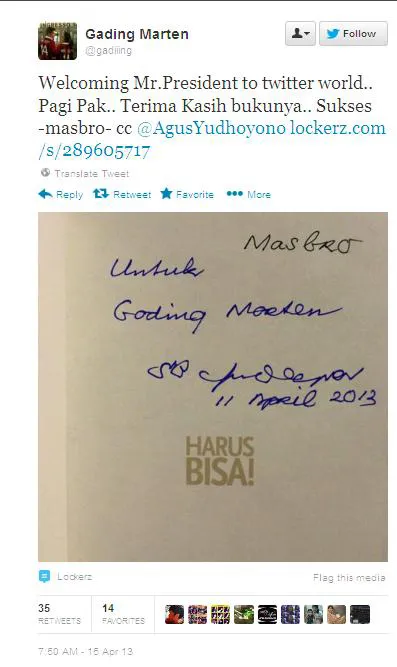 Gading Marten
@gadiiing
Follow
Welcoming Mr.President to twitter world..
Pagi Pak.. Terima Kasih bukunya.. Sukses
-masbro- cc @AgusYudhoyono lockerz.com
/s/289605717
Translate Tweet
Reply Retweet Favorite More
MASBRO
Untuk
Gading Marten
11 April 2013
HARUS
BISA!
Lockerz
Flag this media
35 14
RETWEETS FAVORITES
7:50 AM - 15 Apr 13